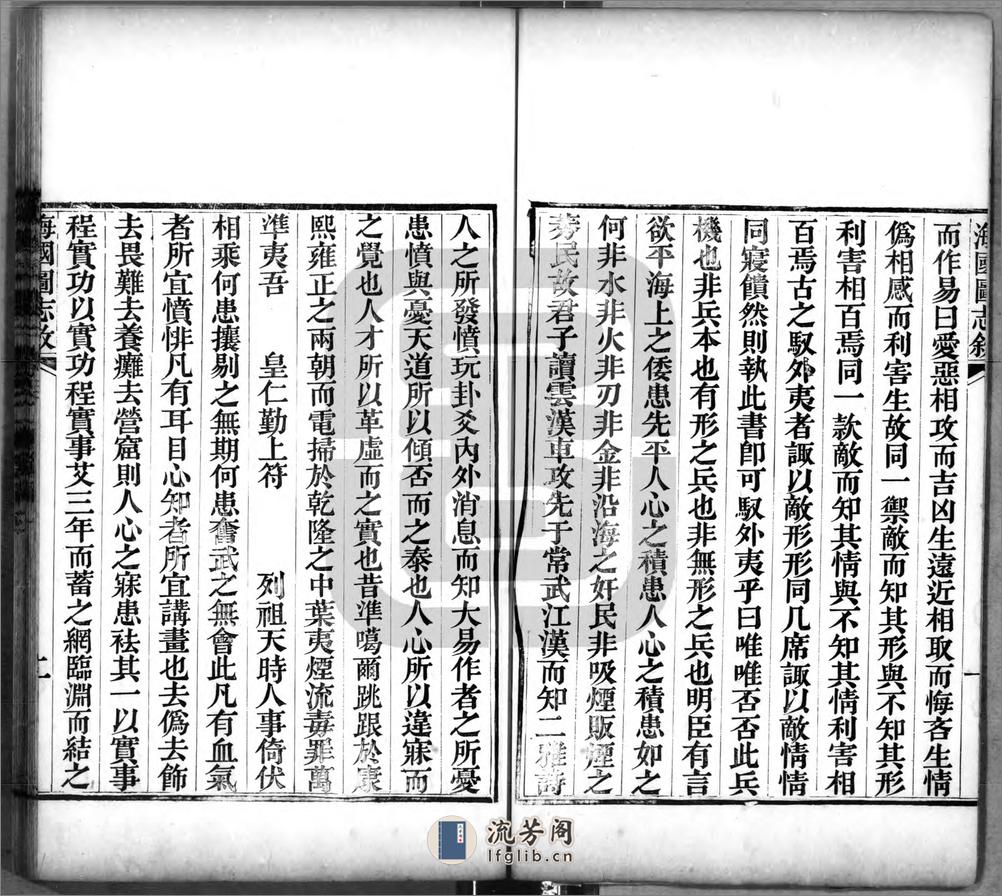 海國圖志敘
而作易曰愛惡相攻而吉凶生遠近相取而悔吝生情
僞相感而利害生故同一禦敵而知其形與不知其形
利害相百焉同一款敵而知其情與不知其情利害相
百焉古之馭外夷者諏以敵形形同几席諏以敵情情
同寢饋然則執此書卽可馭外夷乎曰唯唯否否此兵
機也非兵本也有形之兵也非無形之兵也明臣有言
欲平海上之倭患先平人心之積患人心之積患如之
何非水非火非刃非金非沿海之奸民非吸煙販煙之
莠民故君子讀雲漢車攻先于常武江漢而知二雅詩
人之所發憤玩卦爻內外消息而知大易作者之所憂
患憤與憂天道所以傾否而之泰也人心所以違寐而
之覺也人才所以革虛而之實也昔準噶爾跳踉於康
熙雍正之兩朝而電掃於乾隆之中葉夷煙流毒罪萬
準夷吾 皇仁勤上符 列祖天時人事倚伏
相乘何患攘剔之無期何患奮武之無會此凡有血氣
者所宜憤悱凡有耳目心知者所宜講畫也去僞去飾
去畏難去養癰去營窟則人心之寐患袪其一以實事
程實功以實功程實事艾三年而蓄之網臨淵而結之
海國圖志敘
流芳阁
lfglib.cn